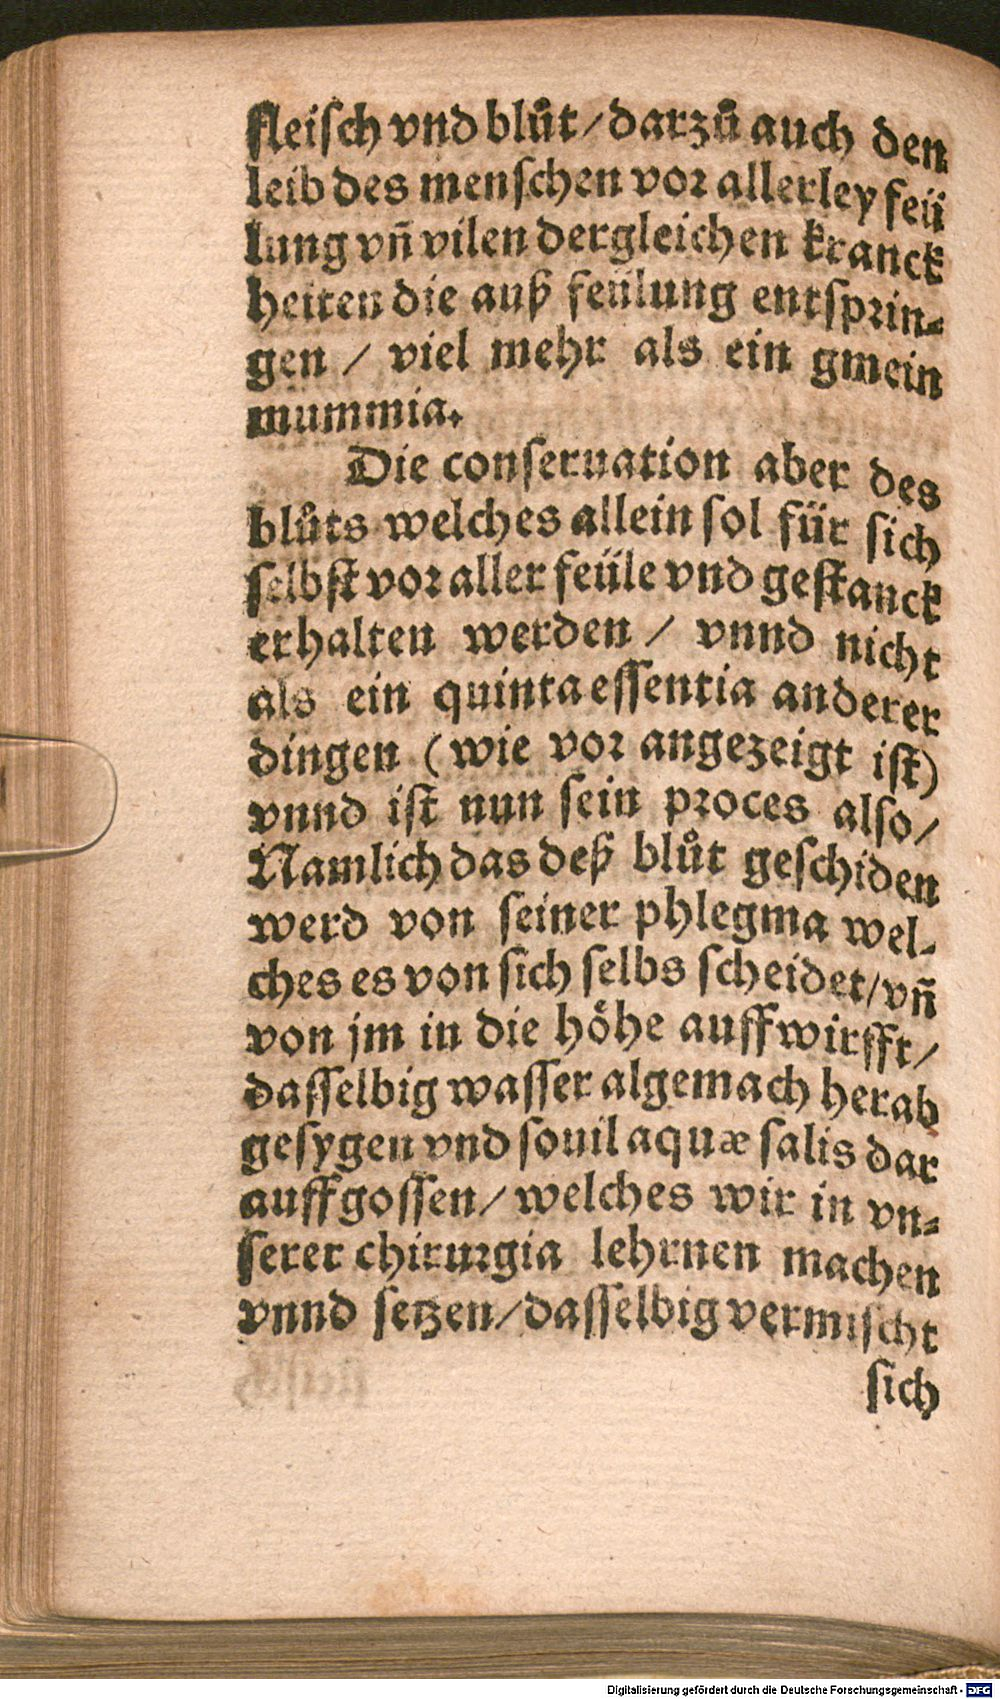 fleisch vnd blůt/darzů auch den
leib des menschen vor allerley feü
lung vñ vilen dergleichen kranck
heiten die auß feülung entsprin-
gen / viel mehr als ein gmein
mummia.
Die conseruation aber des
blůts welches allein sol für sich
selbst vor aller feüle vnd gestanck
erhalten werden / vnnd nicht
als ein quinta essentia anderer
dingen (wie vor angezeigt ist)
vnnd ist nun sein proces also/
Namlich das deß blůt geschiden
werd von seiner phlegma wel-
ches es von sich selbs scheidet/vñ
von jm in die höhe auffwirfft/
dasselbig wasser algemach herab
gesygen vnd souil aquæ salis dar
auffgossen/welches wir in vn-
serer chirurgia lehrnen machen
vnnd setzen/dasselbig vermischt
sich
Digitalisierung gefördert durch die Deutsche Forschungsgemeinschaft - DFG